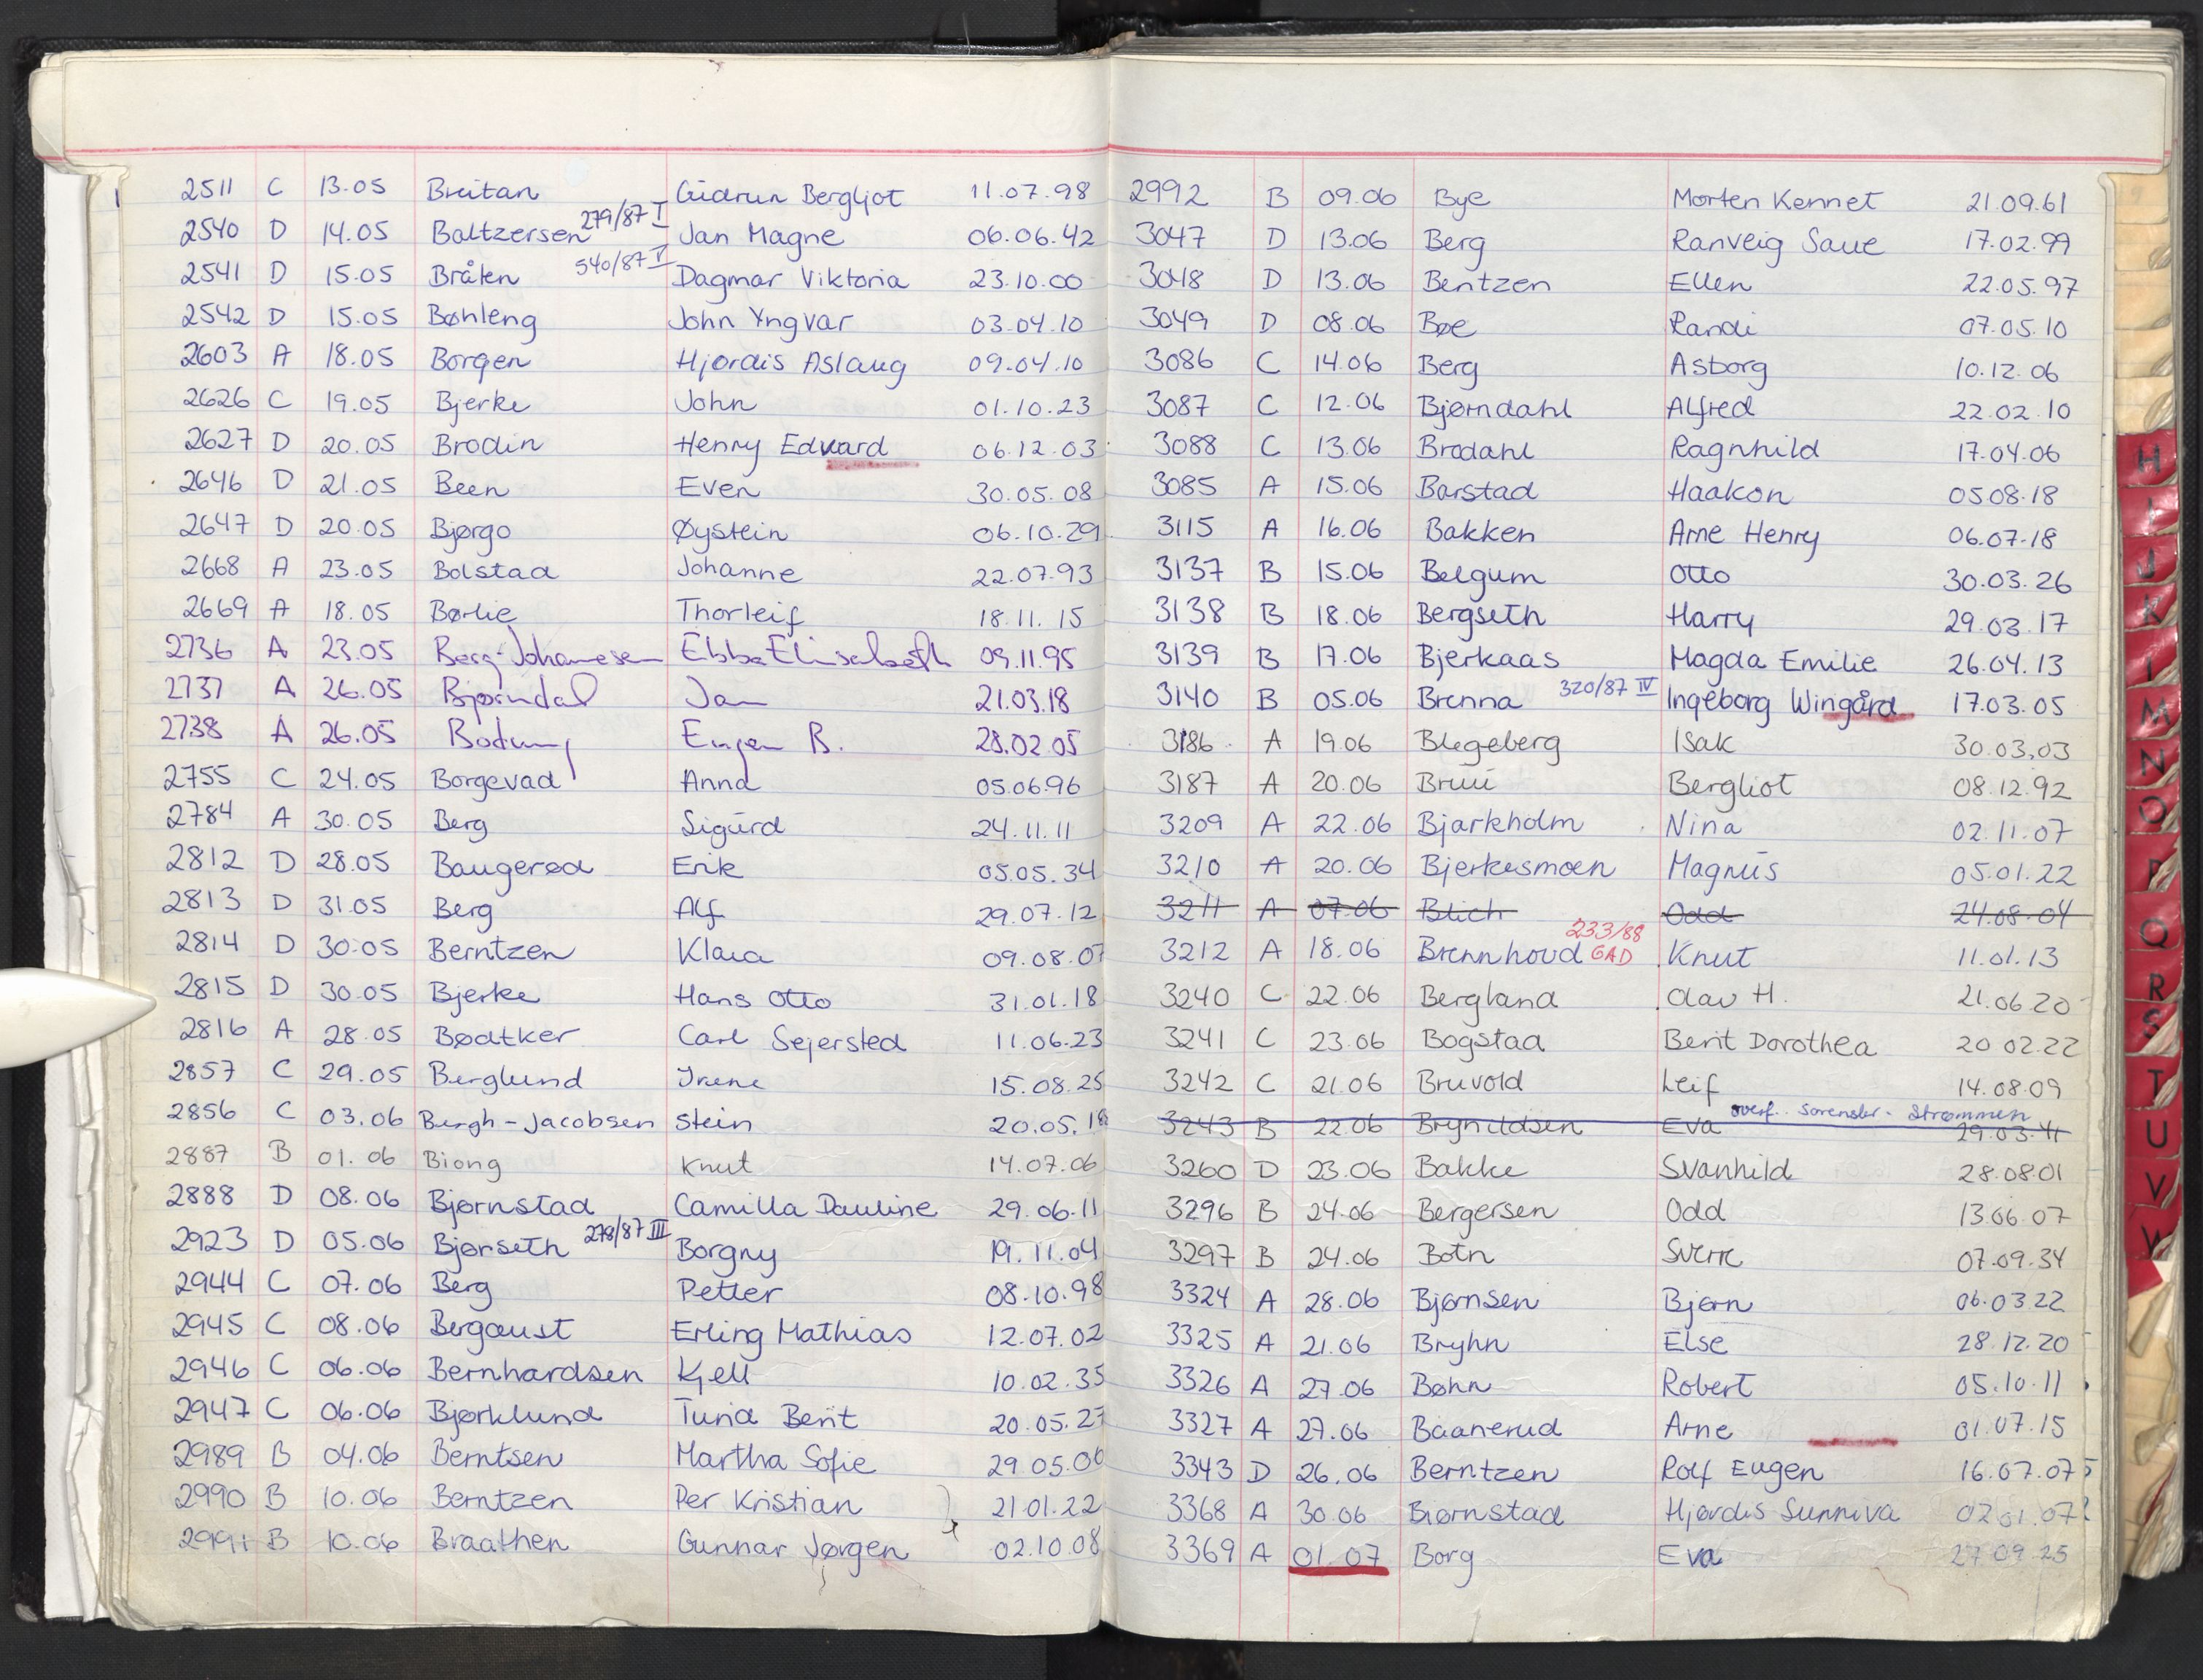 2511 C 13.05 Breitan Gudrun Bergljot 11.07.98
2540 D 14.05 Baltzersen 279/87 I Jan Magne 06.06.42
2541 D 15.05 Bråten 540/87 V Dagmar Viktoria 23.10.00
2542 D 15.05 Bøhleng John Yngvar 03.04.10
2603 A 18.05 Borgen Hjørdis Aslaug 09.04.10
2626 C 19.05 Bjerke John 01.10.23
2627 D 20.05 Brodin Henry Edvard 06.12.03
2646 D 21.05 Been Even 30.05.08
2647 D 20.05 Bjørgo Øystein 06.10.29
2668 A 23.05 Bolstad Johanne 22.07.93
2669 A 18.05 Børlie Thorleif 18.11.15
2736 A 23.05 Berg-Johannesen Ebba Elisabeth 09.11.95
2737 A 26.05 Bjørndal Jan 21.03.18
2738 A 26.05 Eugen B. 28.02.05
2755 C 24.05 Borgevad Anna 05.06.96
2784 A 30.05 Berg Sigurd 24.11.11
2812 D 28.05 Baugerød Erik 05.05.34
2813 D 31.05 Berg Alf 29.07.12
2814 D 30.05 Berntzen Klara 09.08.07
2815 D 30.05 Bjerke Hans Otto 31.01.18
2816 A 28.05 Bødtker Carl Sejersted 11.06.23
2857 C 29.05 Berglund Irene 15.08.25
2856 C 03.06 Bergh-Jacobsen Stein 20.05.18
2887 B 01.06 Biong Knut 14.07.06
2888 D 08.06 Bjørnstad Camilla Pauline 29.06.11
2923 D 05.06 Bjørseth 278/87 III Borgny 19.11.04
2944 C 07.06 Berg Petter 08.10.98
2945 C 08.06 Bergaust Erling Mathias 12.07.02
2946 C 06.06 Bernhardsen Kjell 10.02.35
2947 C 06.06 Bjørklund Turid Berit 20.05.27
2989 B 04.06 Berntsen Martha Sofie 29.05.06
2990 B 10.06 Berntzen Per Kristian 21.01.22
2991 B 10.06 Braathen Gunnar Jørgen 02.10.08
2992 B 09.06 Bye Morten Kennet 21.09.61
3047 D 13.06 Berg Ranveig Saue 17.02.99
3048 D 13.06 Bentzen Ellen 22.05.97
3049 D 08.06 Bøe Randi 07.05.10
3086 C 14.06 Berg Asborg 10.12.06
3087 C 12.06 Bjørndahl Alfred 22.02.10
3088 C 13.06 Brodahl Ragnhild 17.04.06
3085 A 15.06 Barstad Haakon 05.08.18
3115 A 16.06 Bakken Arne Henry 06.07.18
3137 B 15.06 Belgum Otto 30.03.26
3138 B 18.06 Bergseth Harry 29.03.17
3139 B 17.06 Bjerkaas Magda Emilie 26.04.13
3140 B 05.06 Brenna 320/87 IV Ingeborg Wingård 17.03.05
3186 A 19.06 Blegeberg Isak 30.03.03
3187 A 20.06 Bruu Bergliot 08.12.92
3209 A 22.06 Bjarkholm Nina 02.11.07
3210 A 20.06 Bjerkesmoen Magnus 05.01.22
3211 A 07.06 Blich Odd 24.08.04
3212 A 18.06 Brennhovd 233/88 GAD Knut 11.01.13
3240 C 22.06 Bergland Olav H. 21.06.20
3241 C 23.06 Bogstad Berit Dorothea 20.02.22
3242 C 21.06 Bruvold Leif 14.08.09
3243 B 22.06 Brynildsen Eva overf. Sorenskr. Strømmen 29.03.41
3260 D 23.06 Bakke Svanhild 28.08.01
3296 B 24.06 Bergersen Odd 13.06.07
3297 B 24.06 Botn Sverre 07.09.34
3324 A 28.06 Bjørnsen Bjørn 06.03.22
3325 A 21.06 Bryhn Else 28.12.20
3326 A 27.06 Bøhn Robert 05.10.11
3327 A 27.06 Baanerud Arne 01.07.15
3343 D 26.06 Berntzen Rolf Eugen 16.07.07
3368 A 30.06 Bjørnstad Hjørdis Sunniva 02.01.07
3369 A 01.07 Borg Eva 27.09.25
H
I
J
K
L
M
N
O
P
Q
R
S
T
U
V